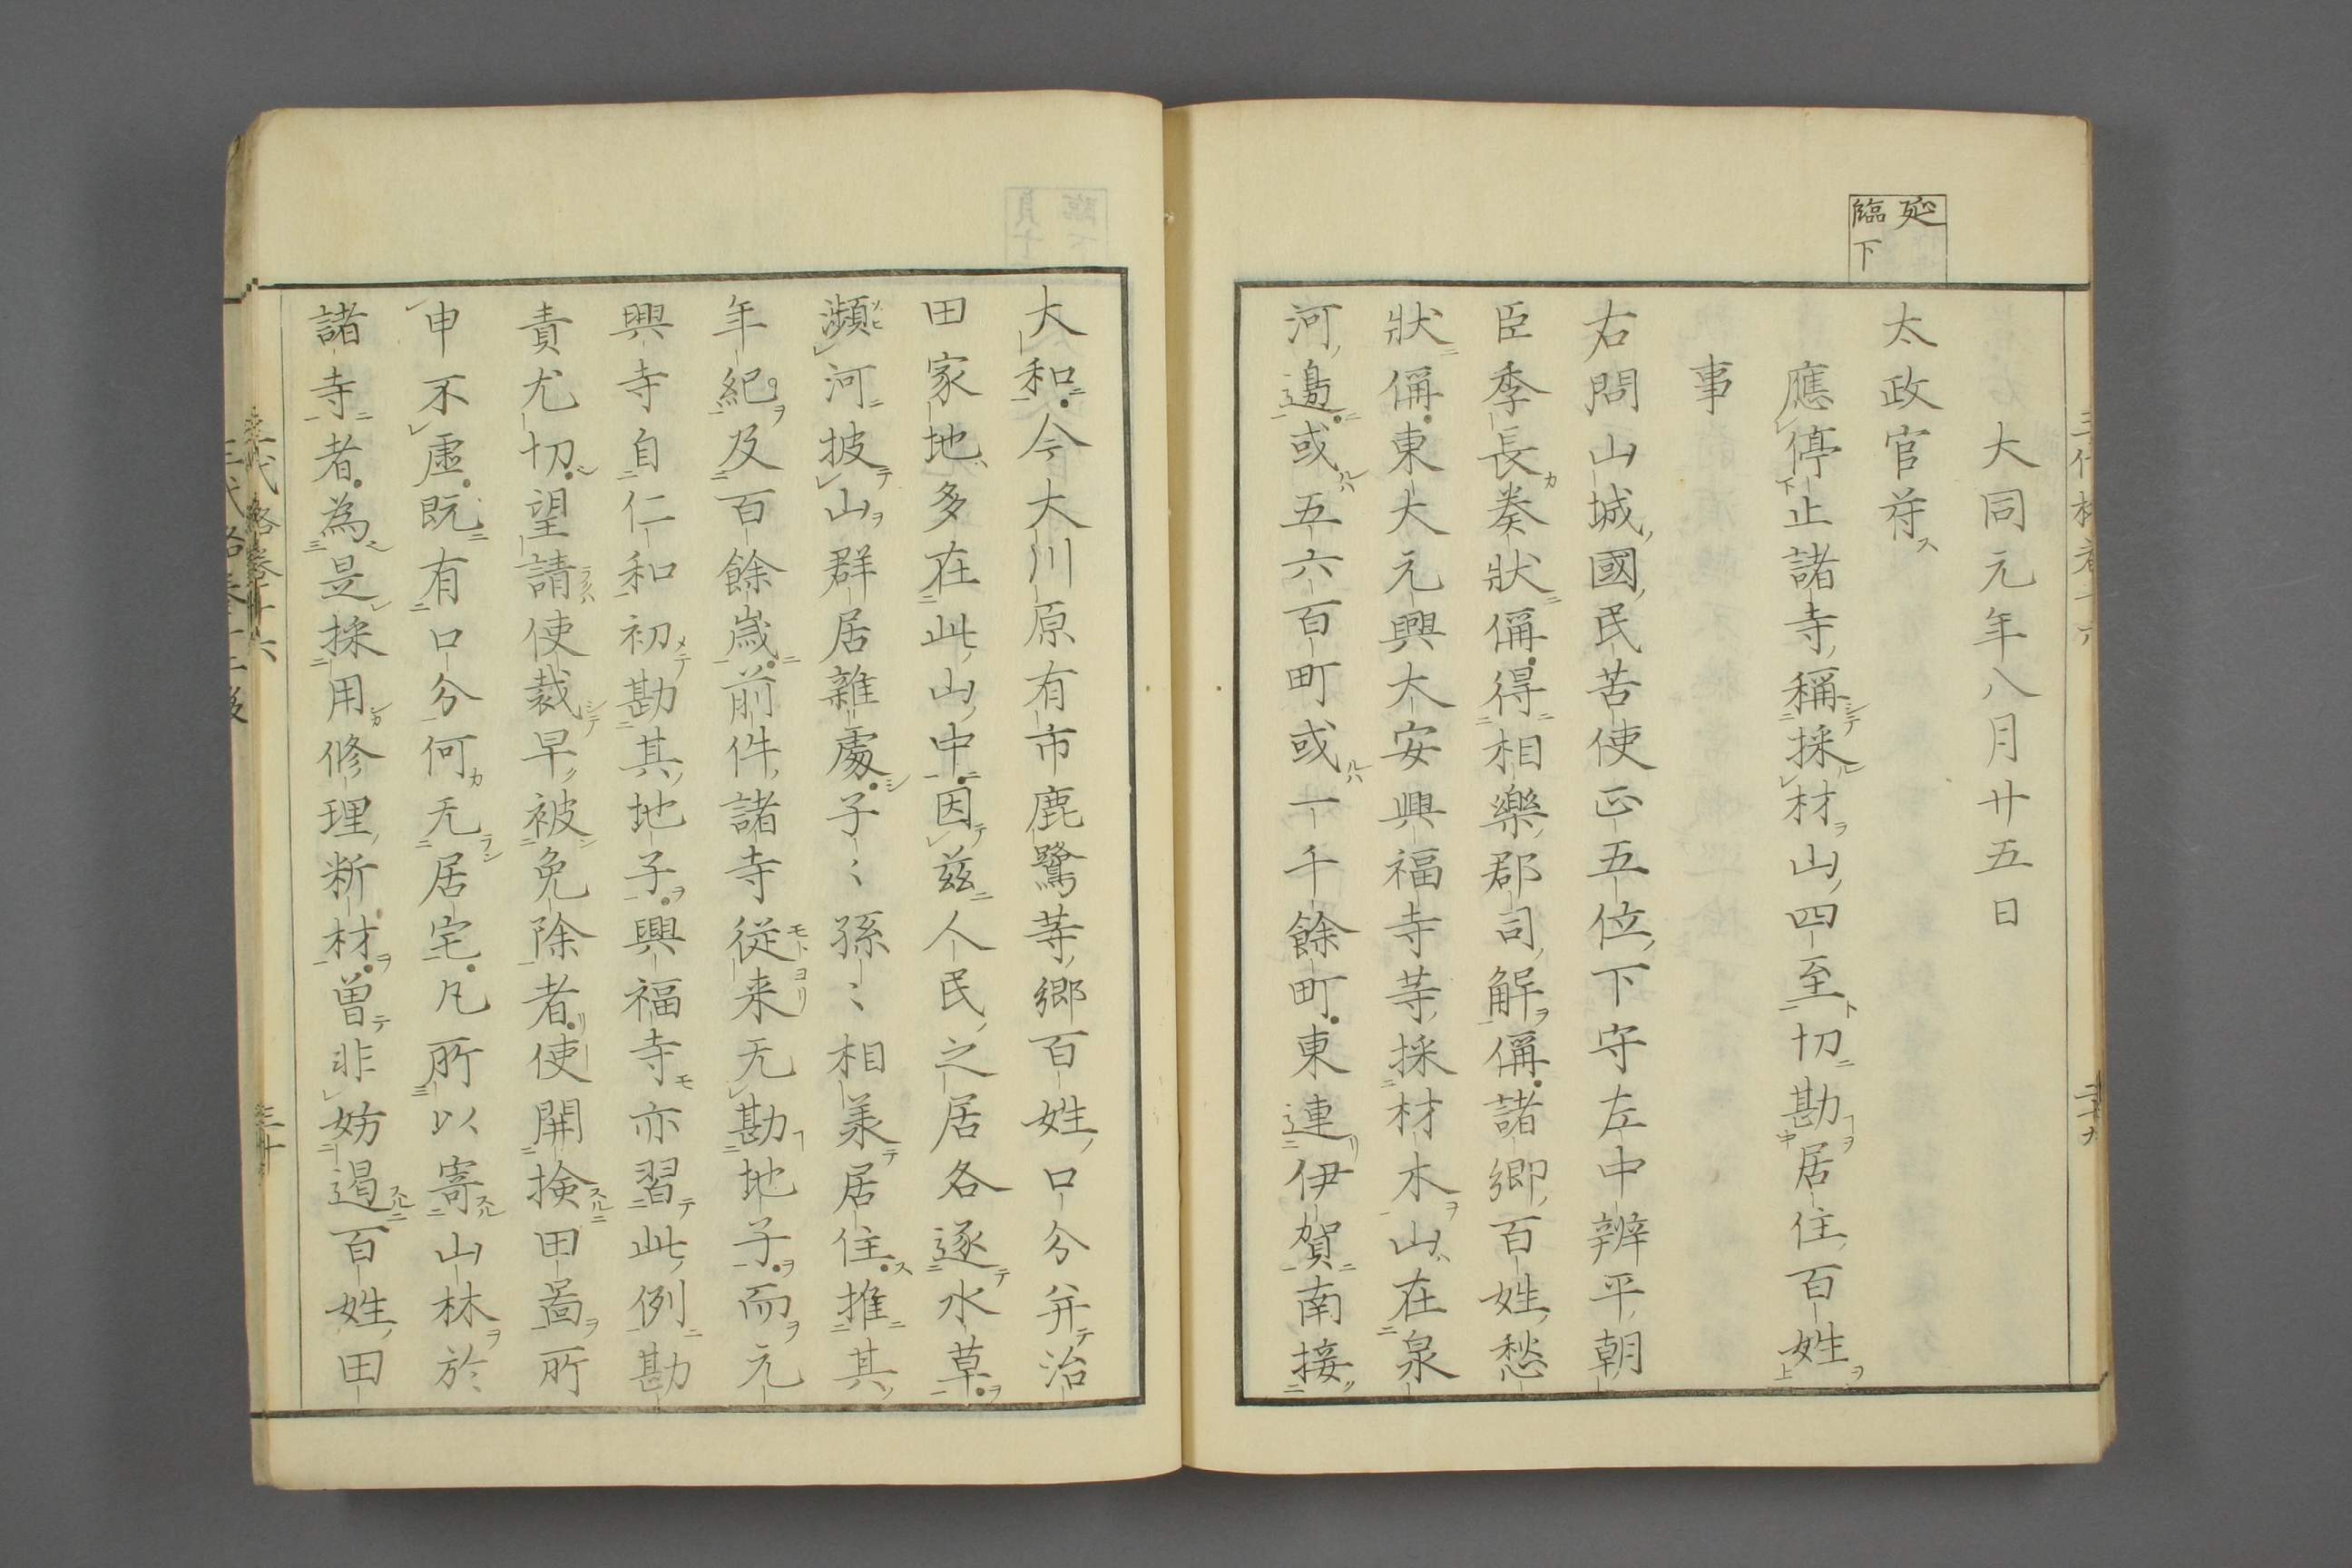 延
臨下
大同元年八月廿五日
太政官符ス
應停止諸寺稱採材山四至切勘居住百姓
事
右問山城國民苦使正五位下守左中辨平朝
臣季長奏狀偁得相樂郡司解偁諸鄉百姓愁
狀偁東大元興大安興福寺等採材木山在泉
河邊或五六百町或一千餘町東連伊賀南接
大和今大川原有市鹿鷺等鄉百姓口分幷治
田家地多在此山中因茲人民之居各逐水草
瀕河披山群居雜處子〻孫〻相羕居住推其
年紀及百餘歲前件諸寺從来无勘地子而元
興寺自仁和初勘其地子興福寺亦習此例勘
責尤切望請使裁早被免除者使開撿田啚所
申不虛既有口分何无居宅凡所以寄山林於
諸寺者為是採用修理䉼材曽非妨遏百姓田
三代格卷十六
三十